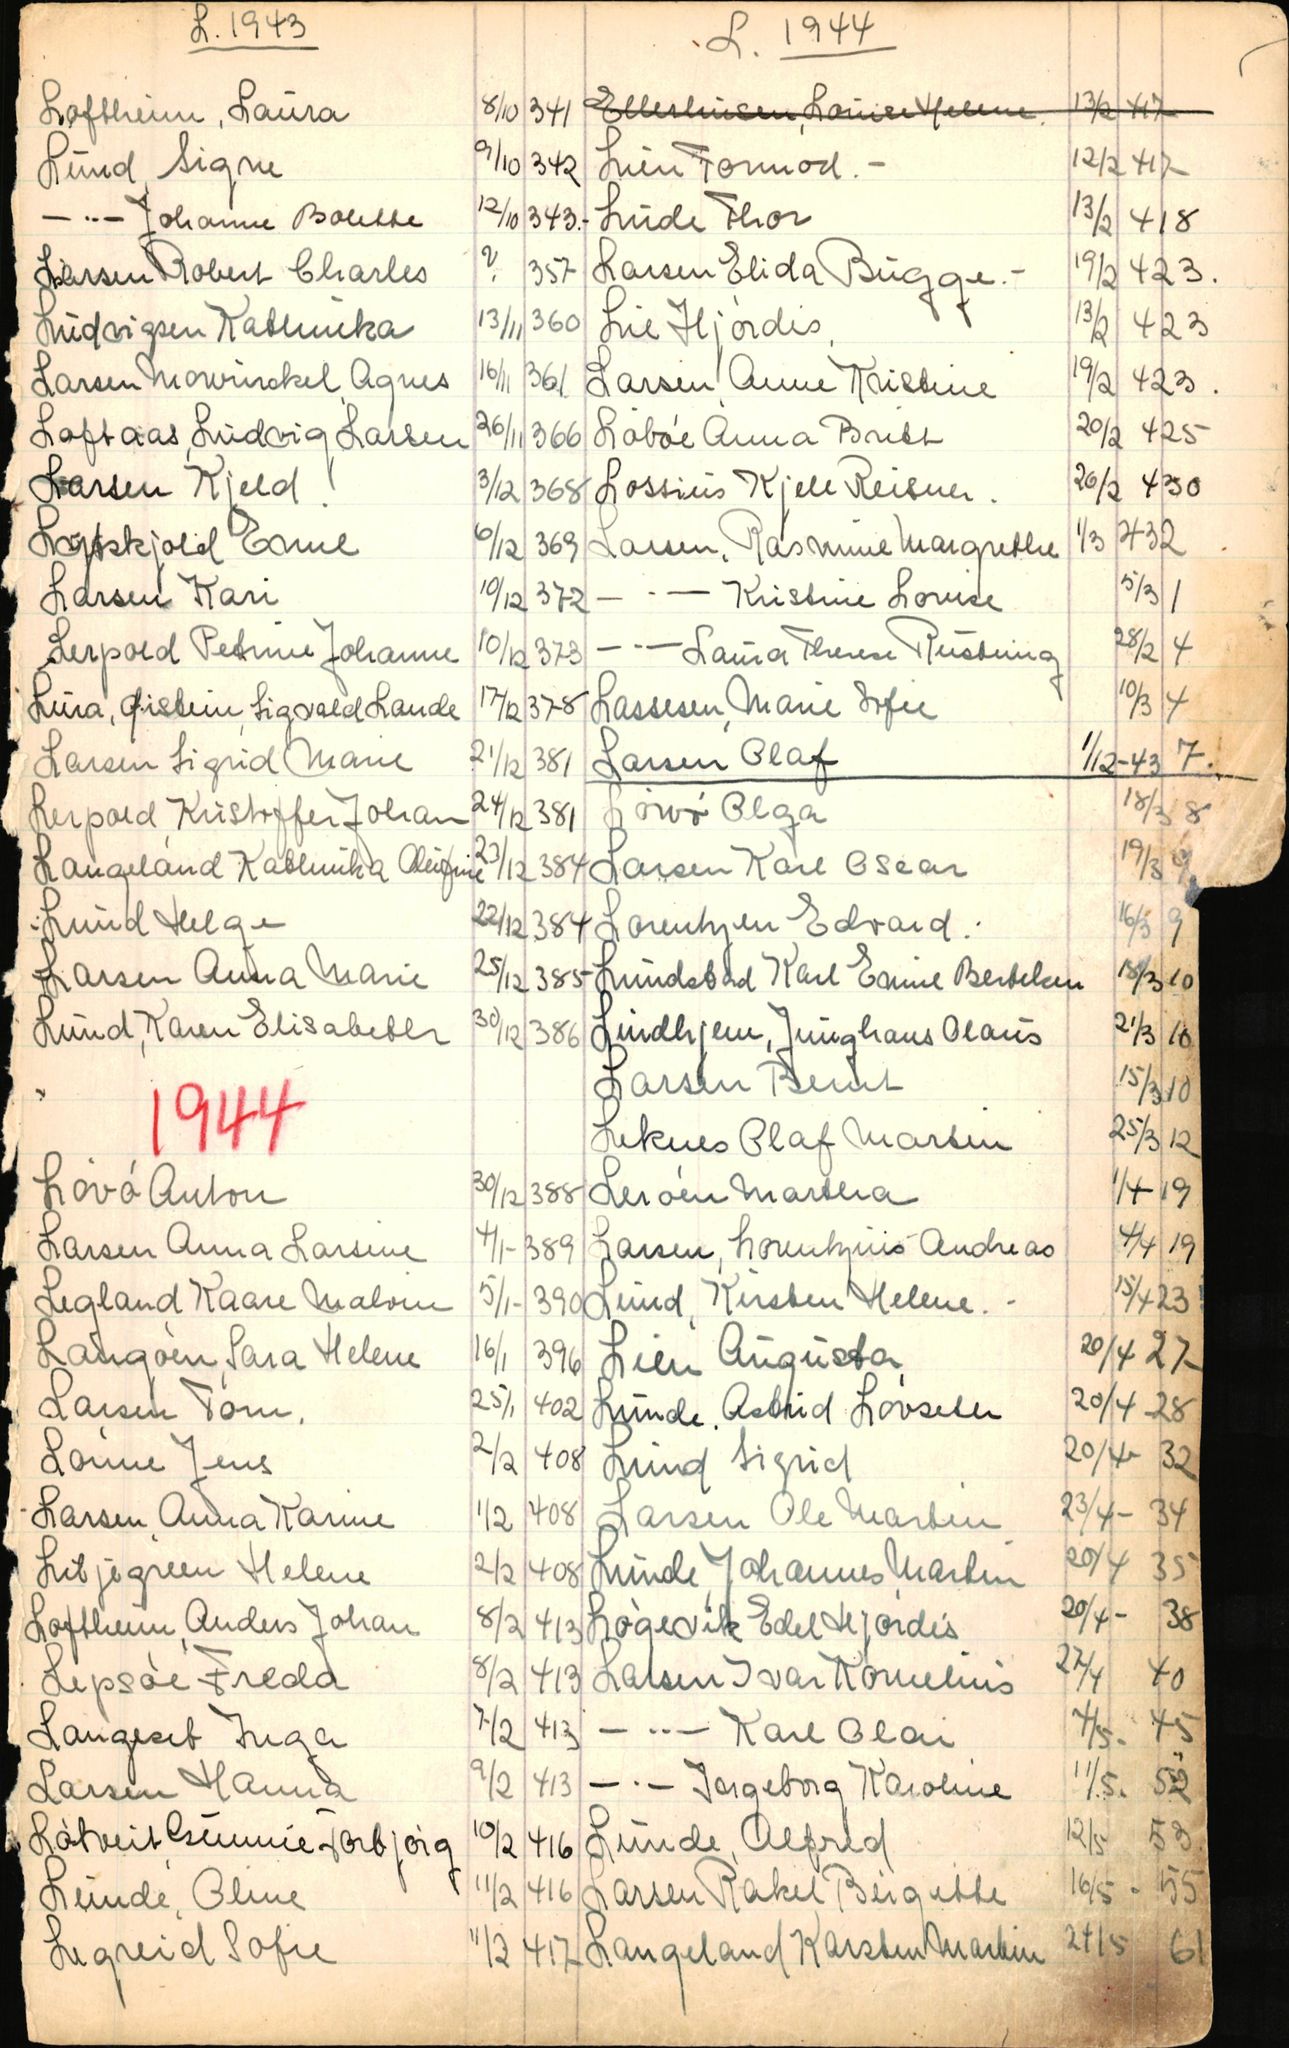 L. 1943
Loftheim, Laura 8/10 341
Lund, Signe 9/10 342
— " — Johanne Bolette 12/10 343.-
Larsen Robert Charles ? 357
Ludvigsen Kathinka 13/11 360
Larsen Mowinckel, Agnes 16/11 361
Loftaas, Ludvig Larsen 26/11 366
Larsen Kjeld 3/12 368
Emil 6/12 369
Larsen Kari 10/12 372
Lerpold Petrine Johanne 10/12 373
Lura, Øistein, Sigvald Lande 17/12 378
Larsen Sigrid Marie 21/12 381
Lerpold Kristoffer Johan 24/12 381
Langeland Kathinka Olufine 23/12 384
Lund Helge 22/12 384
Larsen Anna Marie 25/12 385
Lund, Karen Elisabeth 30/12 386
1944
Lövö Anton 30/12 388
Larsen Anna Larsine 4/1- 389
Legland Kaare Malvin 5/1- 390
Langöen, Sara Helene 16/1 396
Larsen Tom. 25/1 402
Lönne Jens 2/2 408
Larsen, Anna Karine 1/2 408
Litjegreen Helene 2/2 408
Loftheim, Anders Johan 8/2 413
Lepsöe Freda 8/2 413
Langeset Inga 7/2 413
Larsen Hanna 9/2 413
Låtveit, Gunnie Torbjörg 10/2 416
Lunde, Oline 11/2 416
Legreid Sofie 11/2 417
L. 1944
Ellershusen, Louise Helene. 13/2 417
Lien Tormod.- 12/2 417
Linde Thor 13/2 418
Larsen Elida Bugge.- 19/2 423.
Lie Hjördis, 13/2 423
Larsen, Anne Kristine 19/2 423.
Löböe Anna Britt 20/2 425
Lossius Kjell Reisner. 26/2 430
Larsen, Rasmine Margrethe 1/3 432
— " — Kristine Lovise 5/3 1
— " — Laura Therese Rustung 28/2 4
Lassesen, Marie Sofie 10/3 4
Larsen Olaf 1/12-43 7.
Lövö Olga 18/3 8
Larsen Karl Oscar 19/3 9
Lorentzen Edvard. 16/3 9
Lundstad Karl Emil Bertelsen 18/3 10
Lindhjem, Junghans Olaus 21/3 10
Larsen Bernt 15/3 10
Leknes Olaf Martin 25/3 12
Leröen Martha 1/4 19
Larsen, Lorentzius Andreas 4/4 19
Lund, Kirsten Helene.- 15/4 23
Lien Augusta 20/4 27
Lunde, Astrid Lövseth 20/4 28
Lund Sigrid 20/4- 32
Larsen Ole Martin 23/4- 34
Lunde Johannes Martin 20/4 35
Lögevik Edel Hjördis 20/4- 38
Larsen Ivar Kornelius 27/4 40
— " — Karl Olai 4/5. 45
— " — Ingeborg Karoline 11/5. 52
Lunde, Alfred 12/5 53
Larsen Rakel Birgitte 16/5 - 55
Langeland Karsten Martin 24/5 61